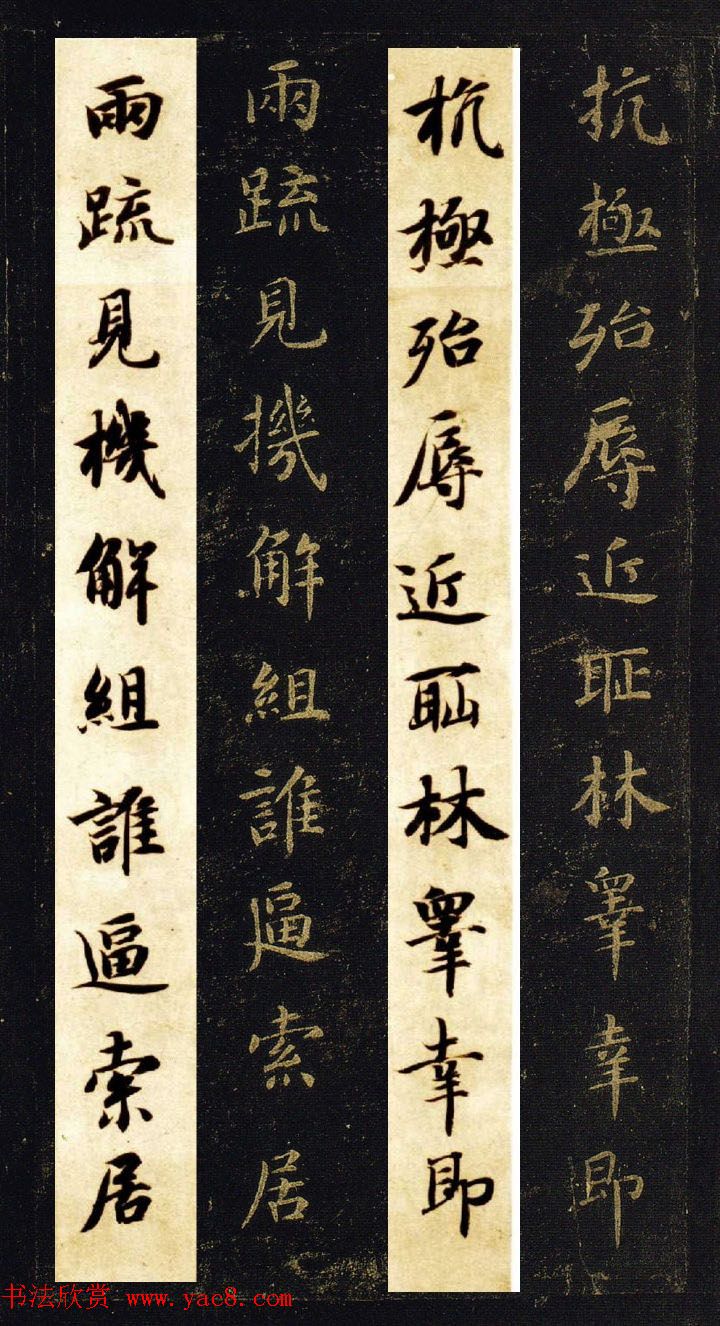 抗極殆辱近耻林睾幸即
杭極殆辱近耻林睾幸即
兩疏見機觧組誰逼索居
兩疏見機觧組誰逼索居
书法欣赏 www.yac8.com